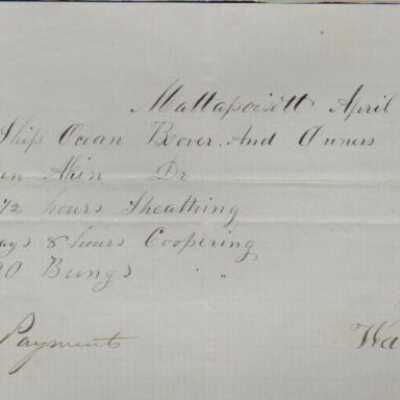 Mattapoisett April
Ship Ocean Rover And Owners
en Akin Dr
72 hours Sheathing
ays 8 hours Coopering
00 Bungs " "
Payment Wa